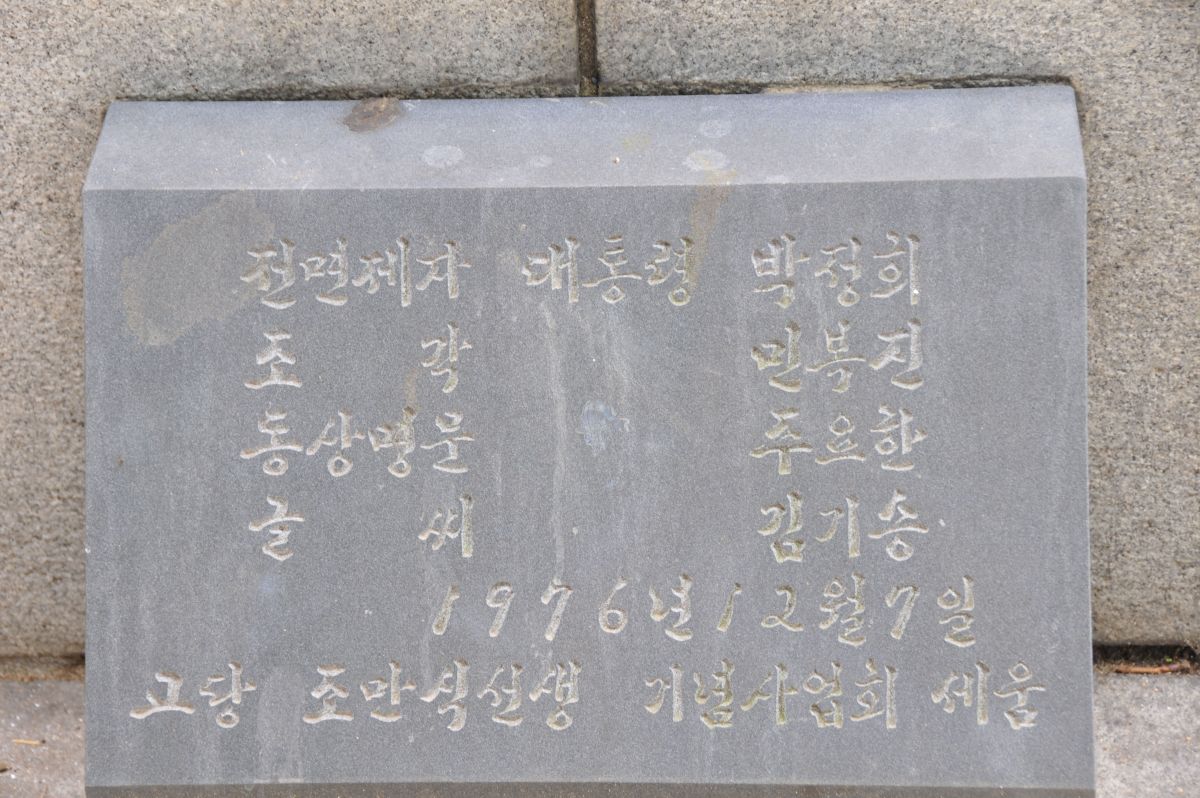 전면제자 대통령 박정희
조 각 민복진
동상명문 주요한
글 씨 김기승
1976년 12월 7일
고당 조만식선생 기념사업회 세움